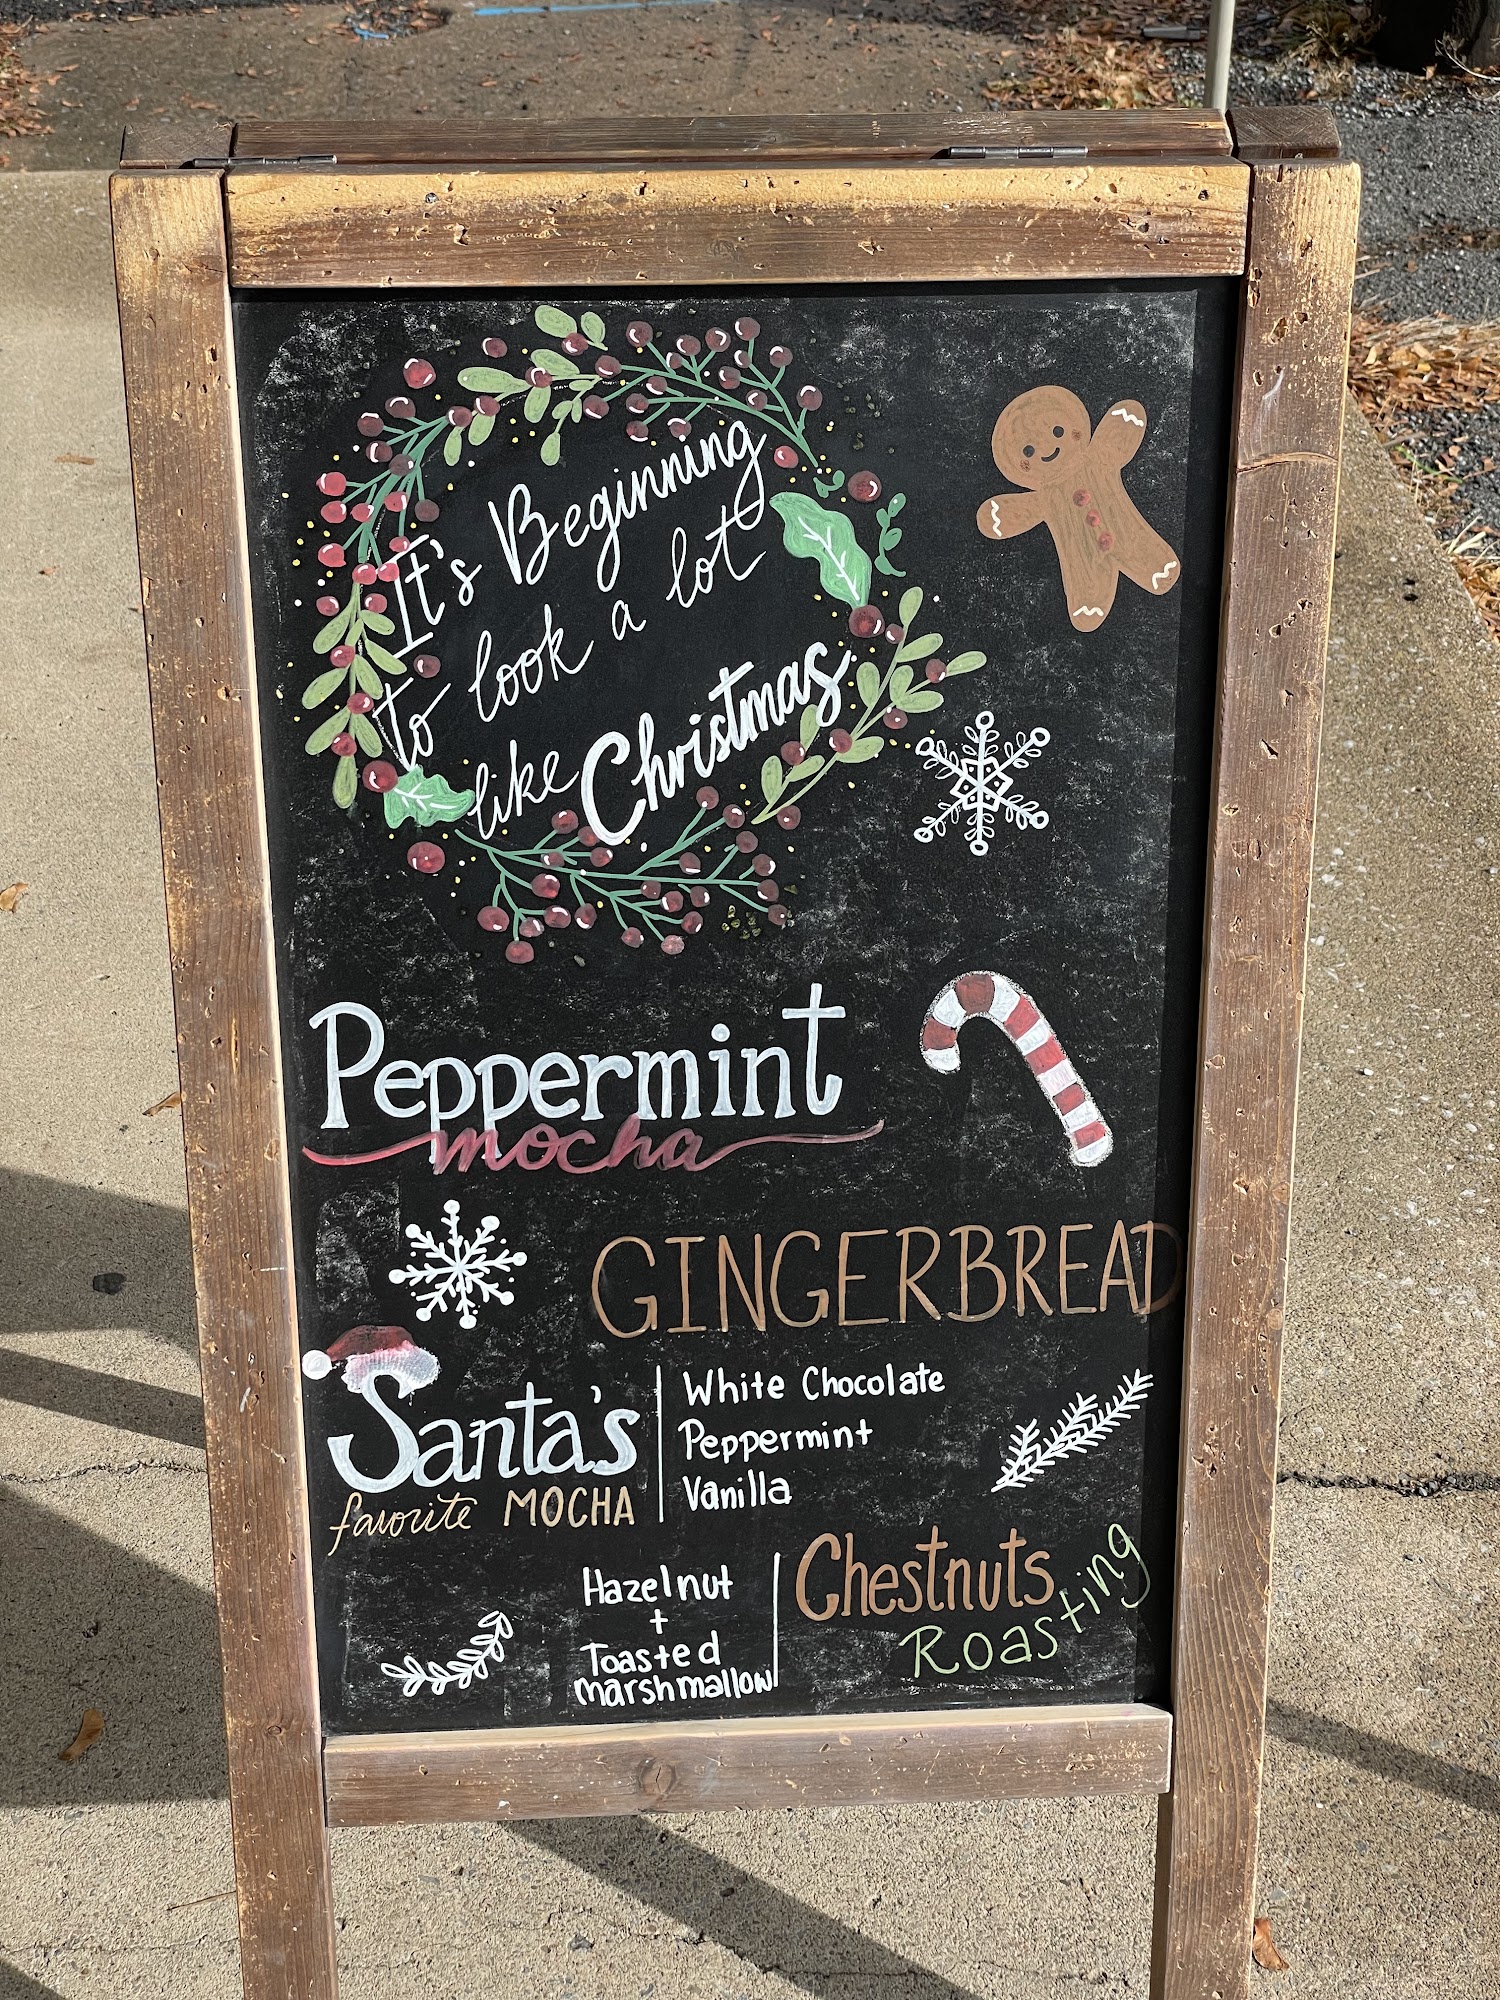 It's Beginning
to look a lot
like Christmas
Peppermint
mocha
GINGERBREAD
Santa's
favorite MOCHA
White Chocolate
Peppermint
Vanilla
Hazelnut
+
Toasted
marshmallow
Chestnuts
Roasting